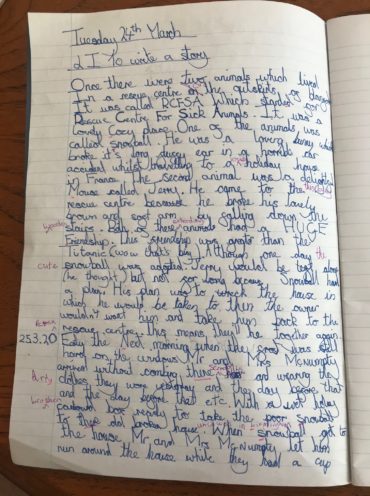 Tuesday 24th March
L I To write a story
Once there were two animals which lived
in a rescue centre on the outskirts of
It was called RCFSA which standed for
Rescue Centre For Sick Animals. It was a
Lovely Cosy place. One of the animals was
called snowball. He was a lovely bunny which
broke it's long ear in a horrible car
accident whilst travelling to a holiday house
in France. The second animal was a
Mouse called Jerry. He came to the
rescue centre because he broke his lovely
brown and soft arm by falling down the
stairs. Both of these animals had a HUGE
Friendship. This friendship was greater than the
Titanic (wow that's big). Although one day the
cute snowball was adopted. Jerry would be left alone
he thought but not for long because Snowball had
a plan. His plan was to wreck the house in
which he would be taken to then the owner
wouldn't want him and take him back to the
rescue centre. this means they'll be together again.
253.20 Early the Next morning when the frost was still
hard on the windows Mr and Mrs Mcnumpty
arrived without combing there hair and wearing the
clothes they wore yesterday and the day before that
and the day before that etc. With a wet holey
cardboard box ready to take the poor Snowball
to there old broken house. When snowball got to
the house Mr and Mrs McNumpty let him
run around the house while they had a cup